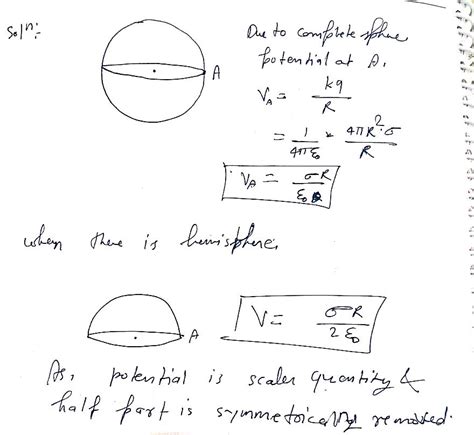 Solⁿ:-
Due to complete sphere
potential at A,
A
V_A = kq/R
= 1/4πε₀ × 4πR²σ/R
V_A = σR/ε₀
when there is hemisphere,
A
V = σR/2ε₀
As, potential is scaler quantity &
half part is symmetrically removed.